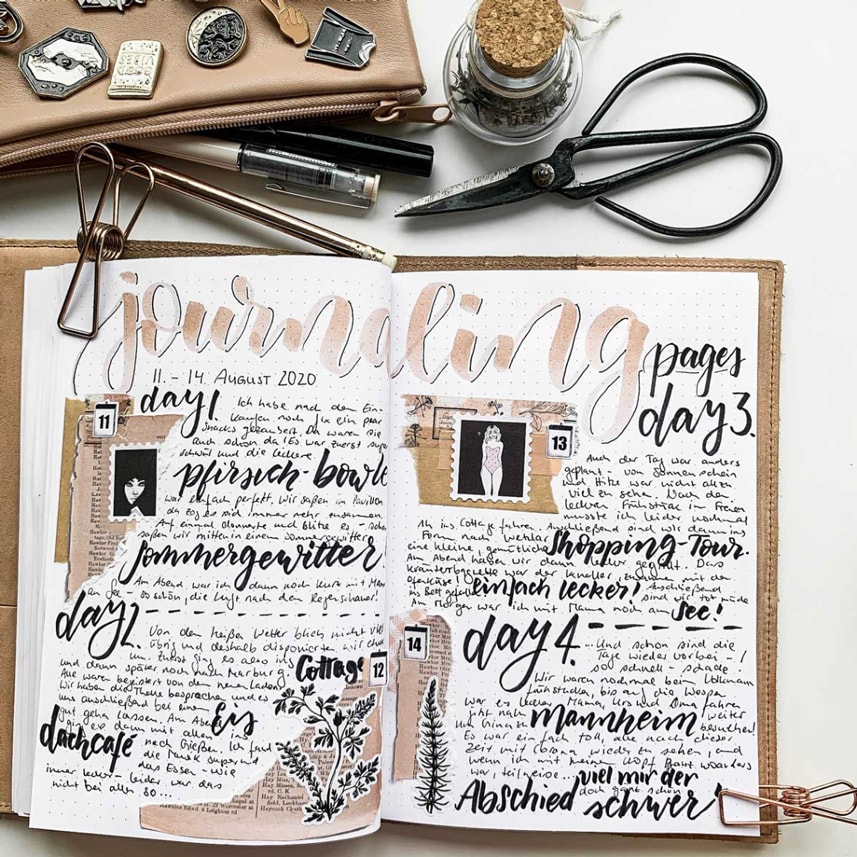 journaling
pages
11. – 14. AUGUST 2020
day 1.
11
Ich habe nach dem Ein-
kaufen noch für ein paar
Snacks gezaubert. Da waren sie
auch schon da! Es war zuerst super
schwül und die leckere
pfirsich-bowle
war einfach perfekt. Wir saßen im Pavillon
da zog es sich immer mehr zusammen.
Auf einmal donnerte und blitze es, schon
saßen wir mitten in einem Sommergewitter
Sommergewitter
Am Abend war ich dann noch kurz mit Mama
so schön, die Luft nach dem Regenschauer!
day 2.
Von dem heißen Wetter blieb nicht viel
übrig und deshalb disponierten wir
um. Zuerst ging es also ins Cottage
und dann später noch nach Marburg
12
Alle waren begeistert von dem neuen Laden
Wir haben die Themen besprochen und es
uns anschließend bei einem Eis
gut gehen lassen. Am Abend
ging es dann mit allen ins
dachcafé
nach Gießen. Ich fand
die Musik super und
das Essen – wie
immer lecker – leider war das
nicht bei allen so...
day 3.
13
Auch der Tag war anders
geplant – von Sonnenschein
und Hitze war nicht allzu
viel zu sehen. Nach dem
leckeren Frühstück im Freien
musste ich leider nochmal
ins Cottage fahren. Anschließend sind wir dann ins
Forum nach Wetzlar
eine kleine, gemütliche Shopping-Tour.
Am Abend haben wir dann lecker gegrillt. Das
Kräuterbaguette war der Knaller, zusammen mit dem
Ofenkäse! einfach lecker! Anschließend
ins Bett sind wir tot müde
Am Morgen war ich mit Mama noch am See!
day 4.
14
... Und schon sind die
Tage wieder vorbei –
so schnell – schade.
Wir waren nochmal beim Volkmann
frühstücken, bis auf die Wespen
war es lecker. Mama, Urs und Oma fahren
jetzt nach Mannheim weiter
um Gina zu besuchen!
Es war einfach toll, alle nach dieser
Zeit mit Corona wieder zu sehen, und
wenn ich mit meinem Kopf ganz woanders
war, teilweise... viel mir der
Abschied doch ganz schön schwer!